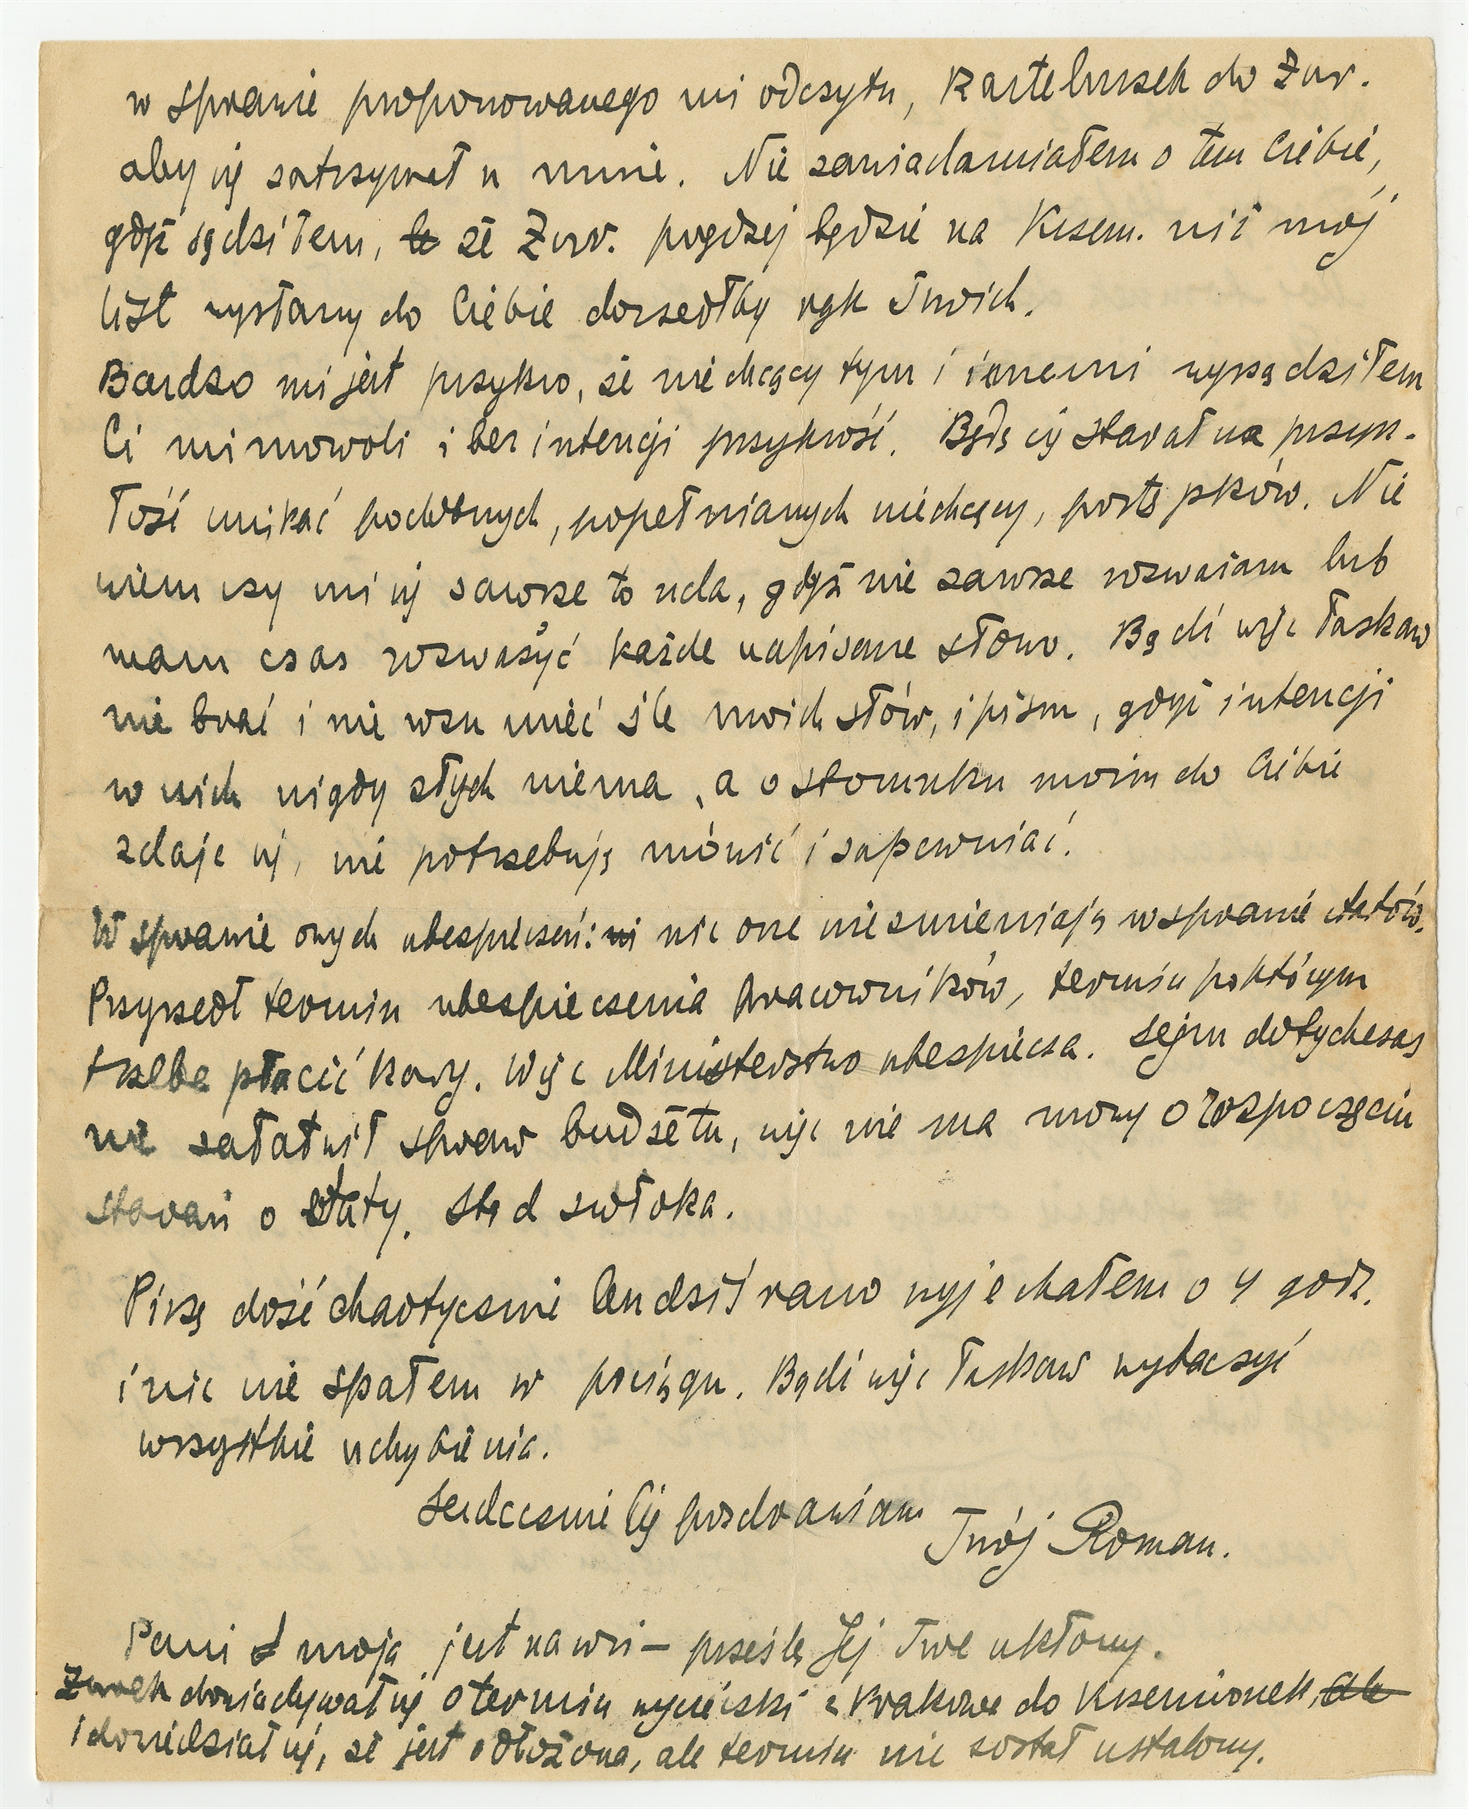 w sprawie proponowanego mi odczytu, karteluszek do Żur.
aby się zatrzymał u mnie. Nie zawiadamiałem o tem Ciebie,
gdyż sądziłem, że Żur. prędzej będzie na Krzem. niż mój
list wysłany do Ciebie doszedłby rąk Twoich.
Bardzo mi jest przykro, że niechcący tym i innemi wyrządziłem
Ci mimowoli i bez intencji przykrość. Będę się starał na przysz-
łość unikać podobnych, popełnianych niechcący, postępków. Nie
wiem czy mi się zawsze to uda, gdyż nie zawsze rozważam lub
mam czas rozważyć każde napisane słowo. Bądź więc łaskaw
nie brać i nie rozumieć źle moich słów, i pism, gdyż intencji
w nich nigdy złych niema, a o stosunku moim do Ciebie
zdaje się, nie potrzebuję mówić i zapewniać.
W sprawie owych ubezpieczeń: nic one nie zmieniają w sprawie etatów.
Przyszedł termin ubezpieczenia pracowników, termin po którym
trzeba płacić kary. Więc Ministerstwo ubezpiecza. Sejm dotychczas
nie załatwił spraw budżetu, więc nie ma mowy o rozpoczęciu
starań o etaty. Stąd zwłoka.
Piszę dość chaotycznie bo dziś rano wyjechałem o 4 godz.
i nic nie spałem w pociągu. Bądź więc łaskaw wybaczyć
wszystkie uchybienia.
Serdecznie Cię pozdrawiam
Twój Roman.
Pani moja jest na wsi – prześlę Jej Twe ukłony.
Żurek dowiadywał się o termin wycieczki z Krakowa do Krzemionek, ale
i dowiedział się, że jest odłożona, ale termin nie został ustalony.